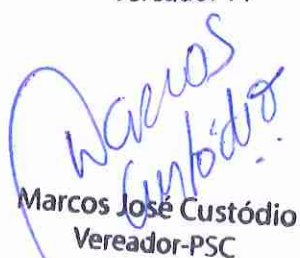 Marcos
Custódio
Marcos José Custódio
Vereador-PSC